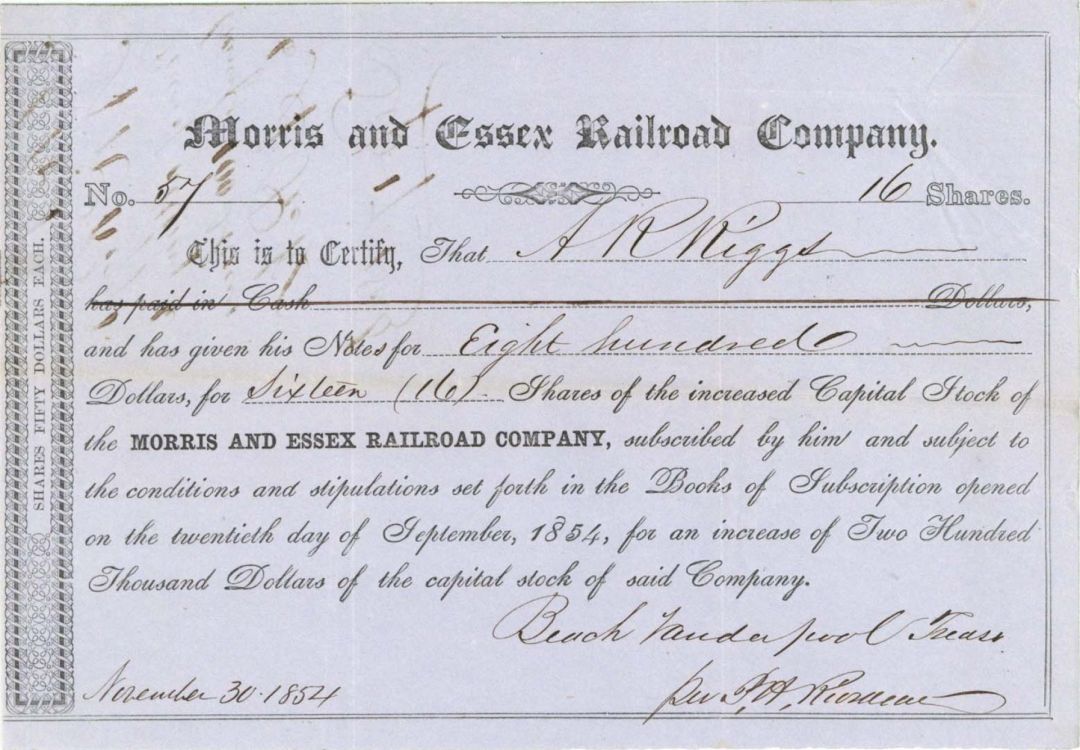 Morris and Essex Railroad Company.
No. 57 16 Shares.
This is to Certify, That A R Riggs
has paid in Cash Dollars,
and has given his Notes for Eight hundred
Dollars, for Sixteen (16) Shares of the increased Capital Stock of
the MORRIS AND ESSEX RAILROAD COMPANY, subscribed by him and subject to
the conditions and stipulations set forth in the Books of Subscription opened
on the twentieth day of September, 1854, for an increase of Two Hundred
Thousand Dollars of the capital stock of said Company.
Beach Vanderpool Treasr
November 30. 1854
per
SHARES FIFTY DOLLARS EACH.